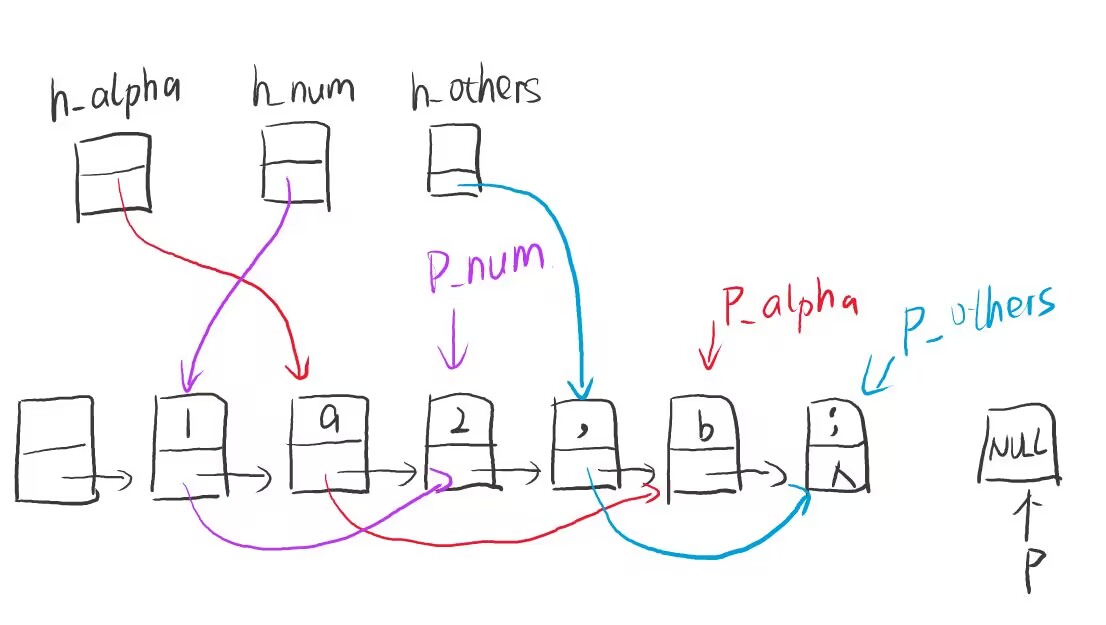 h_alpha h_num h_others
P_num
P_alpha
P_others
1 a 2 , b ; NULL
∧
P